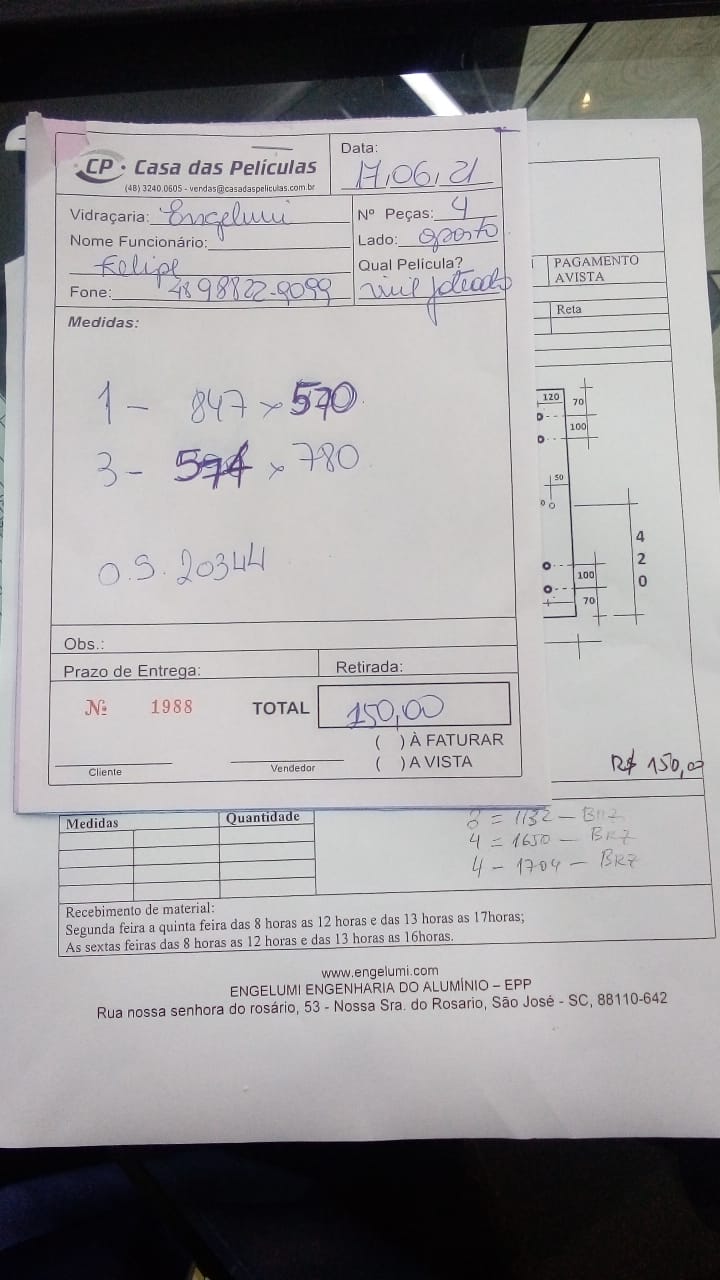 CP. Casa das Películas
(48) 3240.0605 - vendas@casadaspeliculas.com.br
Data: 17,06,21
Vidraçaria: Engelumi
Nº Peças: 4
Nome Funcionário:
Felipe
Lado: oposto
Qual Película?
Fone: 48 98822-9099
jateado
Medidas:
1 - 847 x 570
3 - 574 x 780
O.S. 20344
Obs.:
Prazo de Entrega:
Retirada:
Nº 1988
TOTAL 150,00
( ) À FATURAR
( ) A VISTA
Cliente
Vendedor
PAGAMENTO
AVISTA
Reta
120
70
100
50
420
100
70
R$ 150,00
Medidas Quantidade
= 1132 - BRZ
4 = 1650 - BRZ
4 - 1704 - BRZ
Recebimento de material:
Segunda feira a quinta feira das 8 horas as 12 horas e das 13 horas as 17horas;
As sextas feiras das 8 horas as 12 horas e das 13 horas as 16horas.
www.engelumi.com
ENGELUMI ENGENHARIA DO ALUMÍNIO – EPP
Rua nossa senhora do rosário, 53 - Nossa Sra. do Rosario, São José - SC, 88110-642